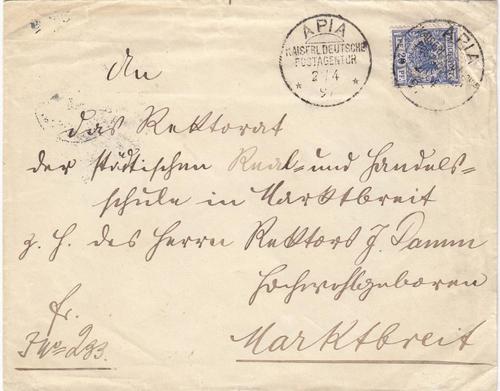 APIA
KAISERL. DEUTSCHE
POSTAGENTUR
2/4
97
APIA
An
das Rektorat
der städtischen Real- und Handels-
schule in Marktbreit
z. H. des Herrn Rektors J. Damm
Hochwohlgeboren
fr.
Marktbreit